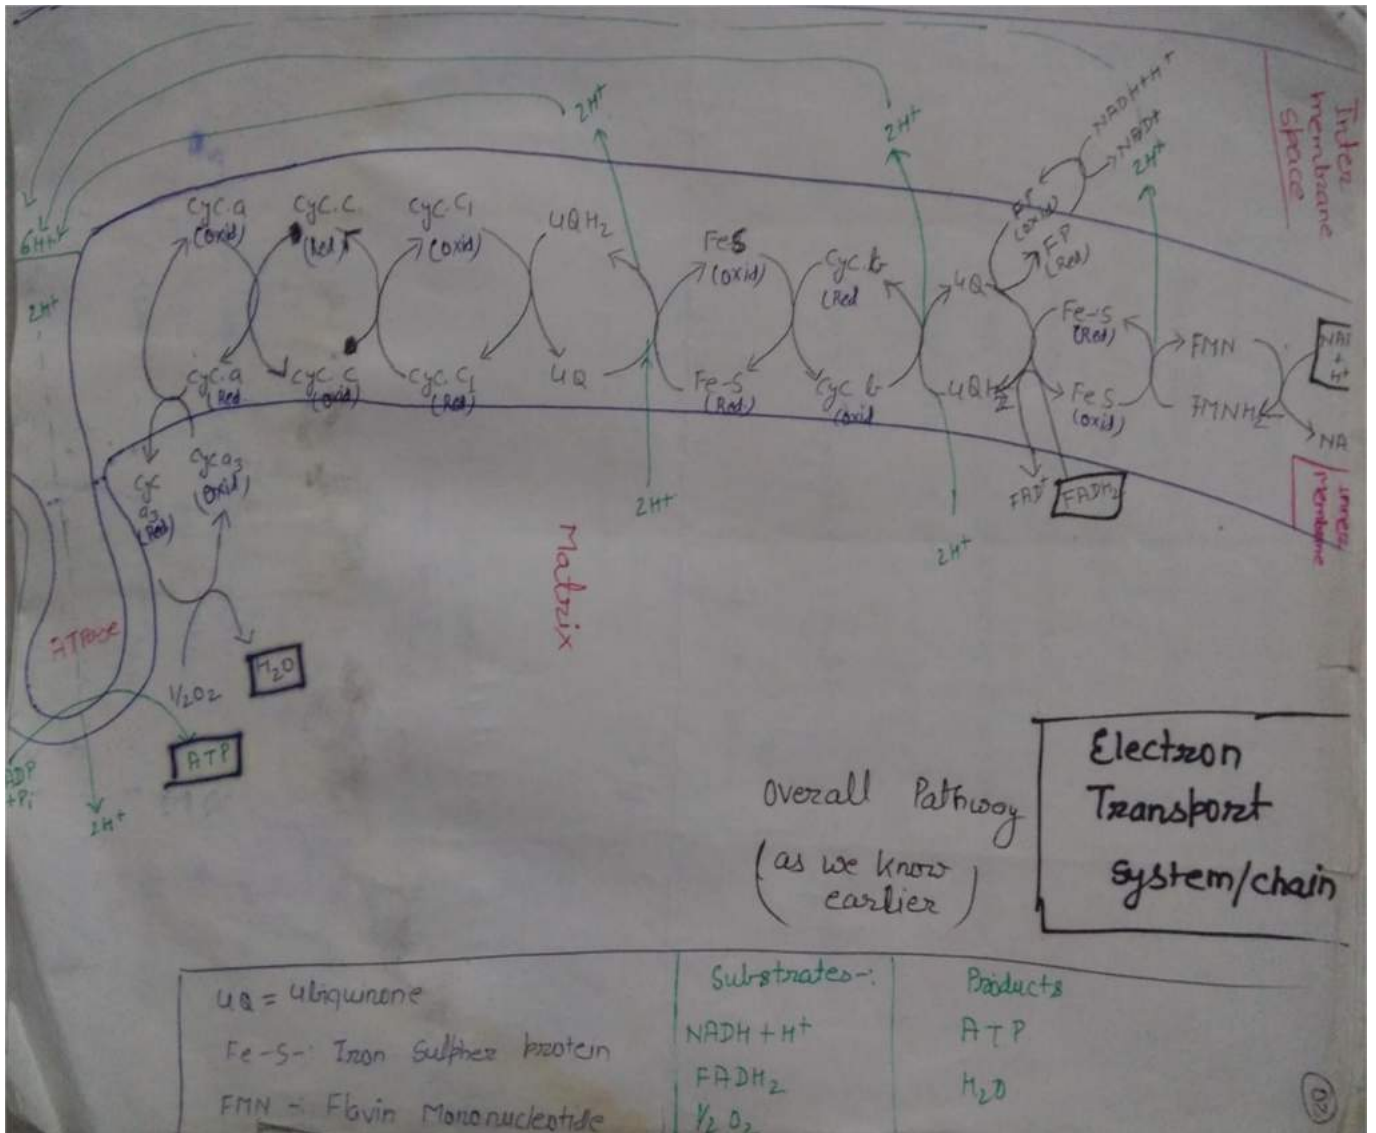 Inter
membrane
space
NADH+H+
NAD+
2H+
2H+
2H+
6H+
2H+
cyc.a
(Oxid)
cyc.c
(Red)
cyc.c1
(Oxid)
UQH2
FeS
(Oxid)
cyc.b
(Red
UQ
FP
(Oxid)
FP
(Red)
Fe-S
(Red)
FMN
NAD
+
H+
cyc.a
(Red
cyc.c
(Oxid)
cyc.c1
(Red)
UQ
Fe-S
(Red)
cyc b
(Oxid
UQH2
FeS
(Oxid)
FMNH2
NA
inner
Membrane
cyc
a3
(Red)
cyc a3
(Oxid)
2H+
2H+
FAD+
FADH2
Matrix
ATPase
½O2
H2O
ADP
+Pi
ATP
2H+
Overall Pathway
(as we know
earlier)
Electron
Transport
system/chain
UQ = Ubiquinone
Fe-S-: Iron Sulpher protein
FMN - Flavin Mononucleotide
Substrates-:
NADH + H+
FADH2
½ O2
Products
ATP
H2O
02